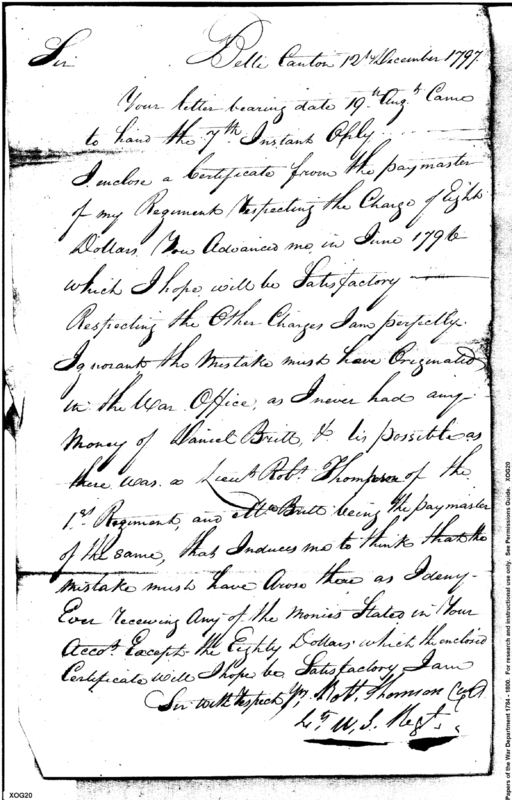 Sir Belle Canton 12th December 1797
Your letter bearing date 19th Augt Came
to hand the 7th Instant Only
I enclose a Certificate from the paymaster
of my Regiment Respecting the Charge of Eight
Dollars You Advanced me in June 1796
which I hope will be Satisfactory
Respecting the Other Charges I am perfectly
Ignorant the Mistake must have Originated
in the War Office, as I never had any
Money of Daniel Britt, & tis possible as
there was a Lieut Robt Thompson of the
1st Regiment, and Mr Britt being the paymaster
of the same, that Induces me to think that the
mistake must have Arose there as I deny
Ever receiving Any of the Monies Stated in Your
Accot. Except the Eighty Dollars which the enclosed
Certificate will I hope be Satisfactory I am
Sir with Respect Robt. Thomson Capt
U. S. Regt.
XOG20
Papers of the War Department 1784 - 1800. For research and instructional use only. See Permissions Guide. XOG20